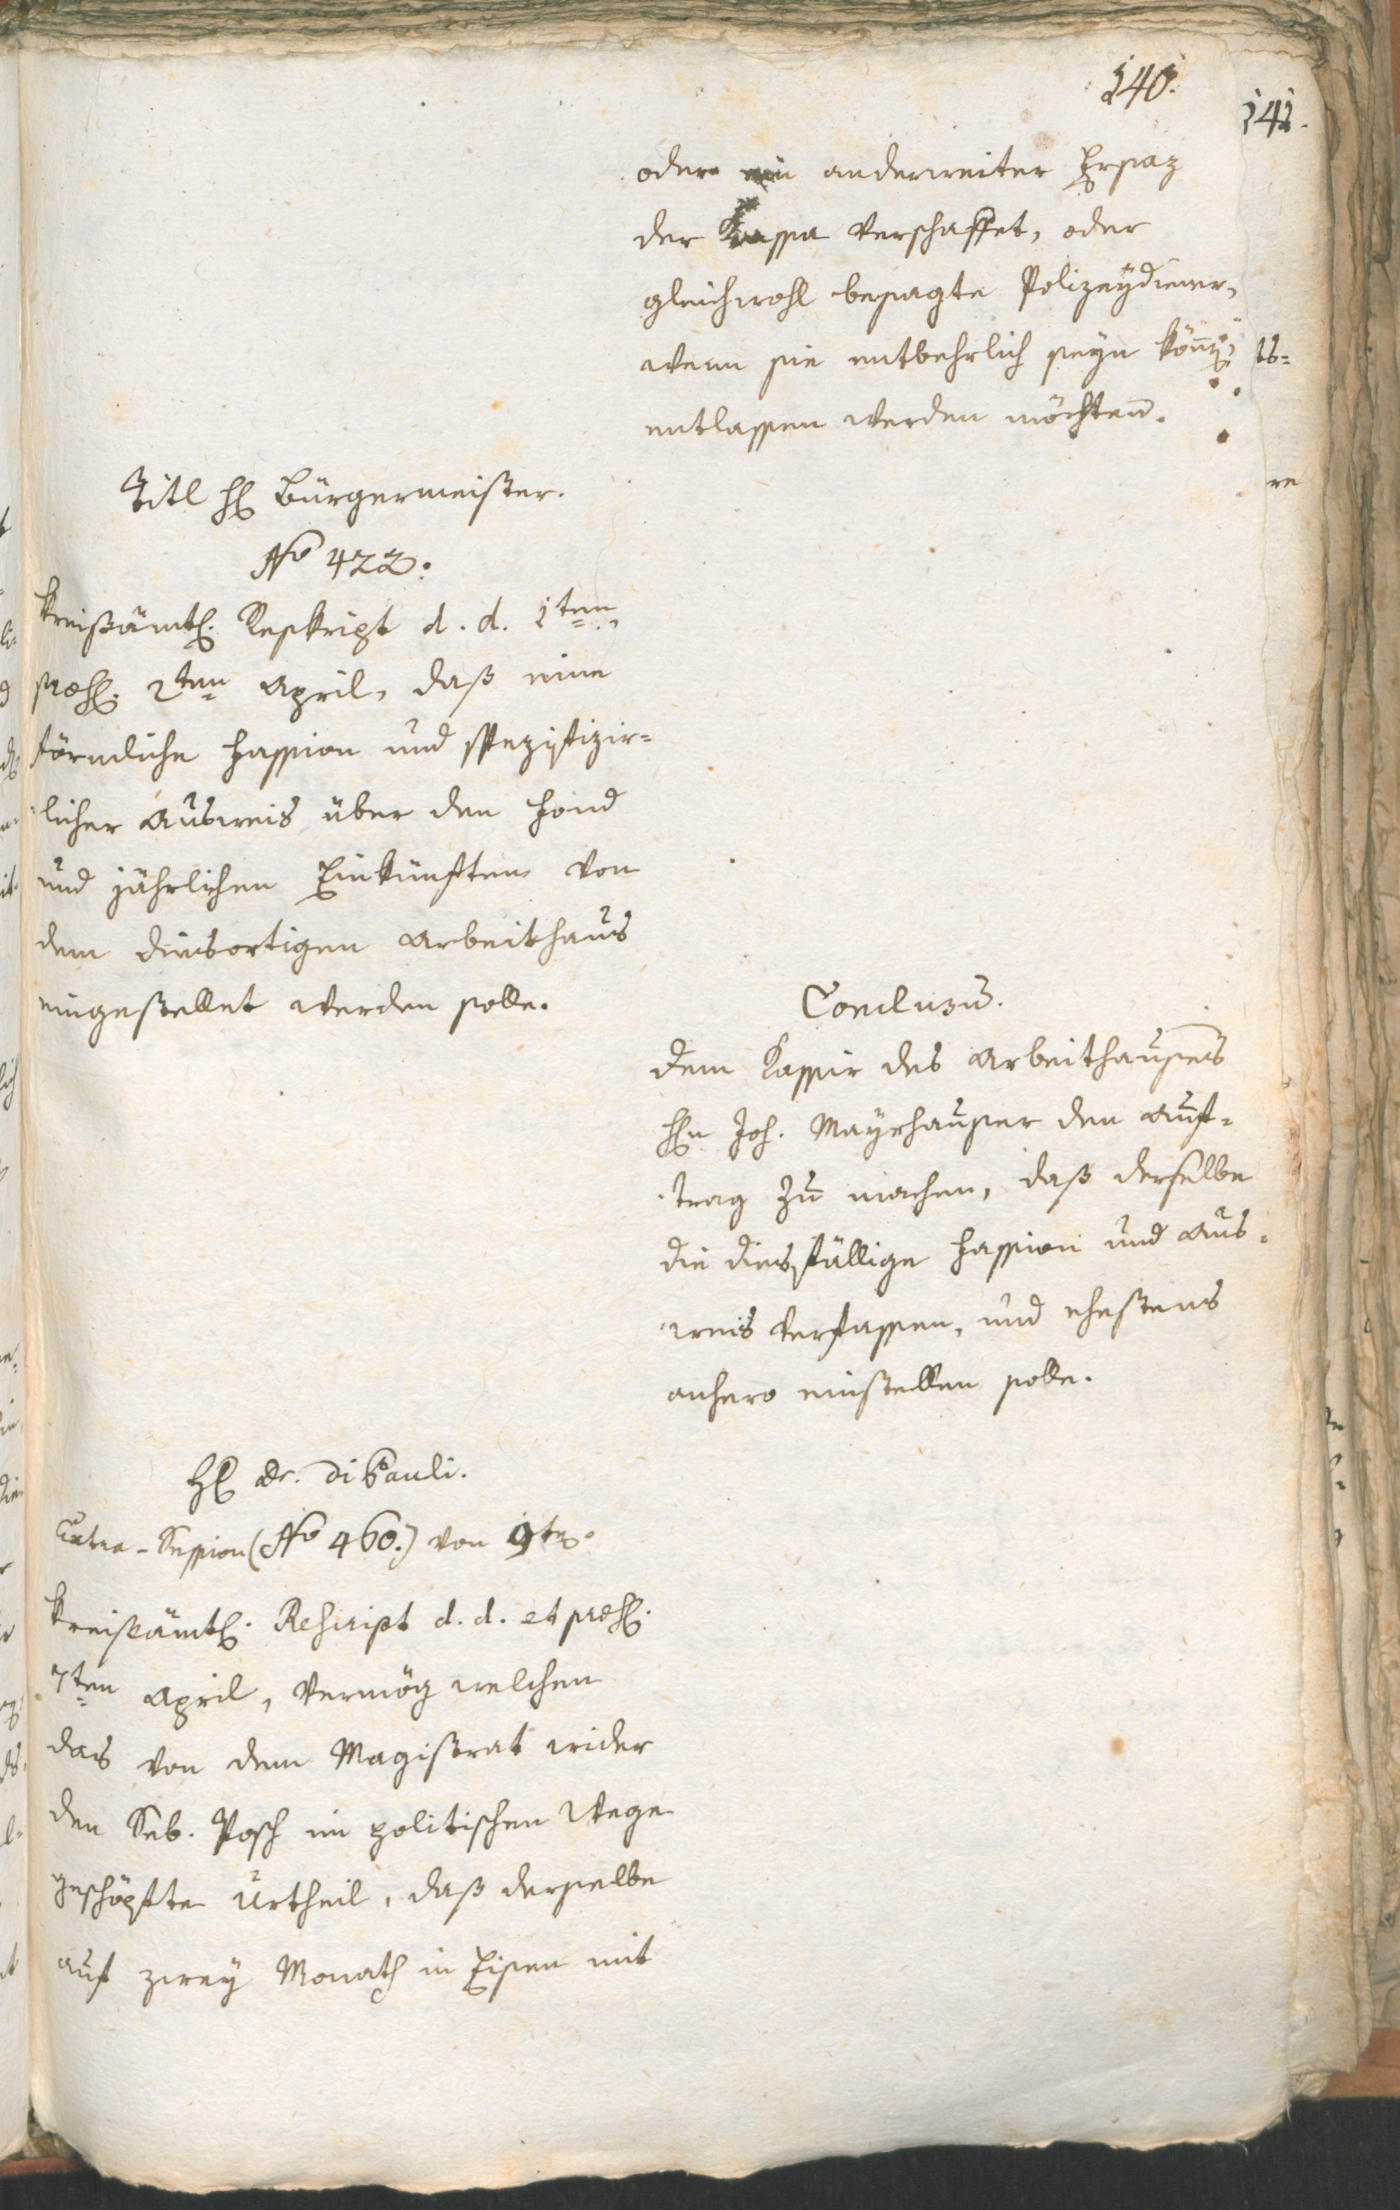 140.
141.
oder ein anderweiter Ersaz
der Kassa verschaffet, oder
gleichwohl besagte Polizeydiener,
wenn sie entbehrlich seyn könnt(en),
entlassen werden möchten.
ts=
re
Titl H. Bürgermeister.
No 422.
Kreisämtl. Reskript d. d. 1ten
præs. 2ten April, daß eine
förmliche Fassion und spezifizir=
licher Ausweis über den Fond
und jährlichen Einkünften von
dem diesortigen Arbeithaus
eingestellet werden solle.
Conclusum.
Dem Kassir des Arbeithauses
Hn Joh. Mayrhauser den Auf=
trag zu machen, daß derselbe
die diesfällige Fassion und Aus=
weis verfassen, und ehestens
anhero einstellen solle.
H. Dr. di Pauli.
Extra-Session (No 460.) von 9ten.
Kreisämtl. Rescript d. d. et præs.
7ten April, vermög welchen
das von dem Magistrat wider
den Seb. Posch im politischen Wege
geschöpfte Urtheil, daß derselbe
auf zwey Monath in Eisen mit